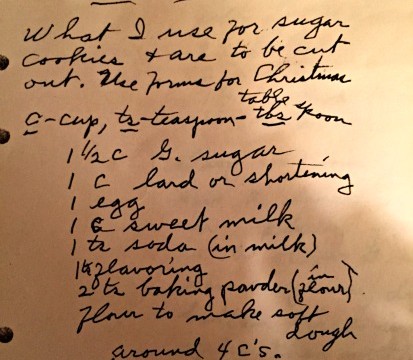 What I use for sugar
cookies & are to be cut
out. Use forms for Christmas
table
C-cup, ts-teaspoon-tbs spoon
1 1/2 C G. sugar
1 C lard or shortening
1 egg
1 C sweet milk
1 ts soda (in milk)
1 ts flavoring
in
2 ts baking powder (flour)
flour to make soft
dough
around 4 C's.